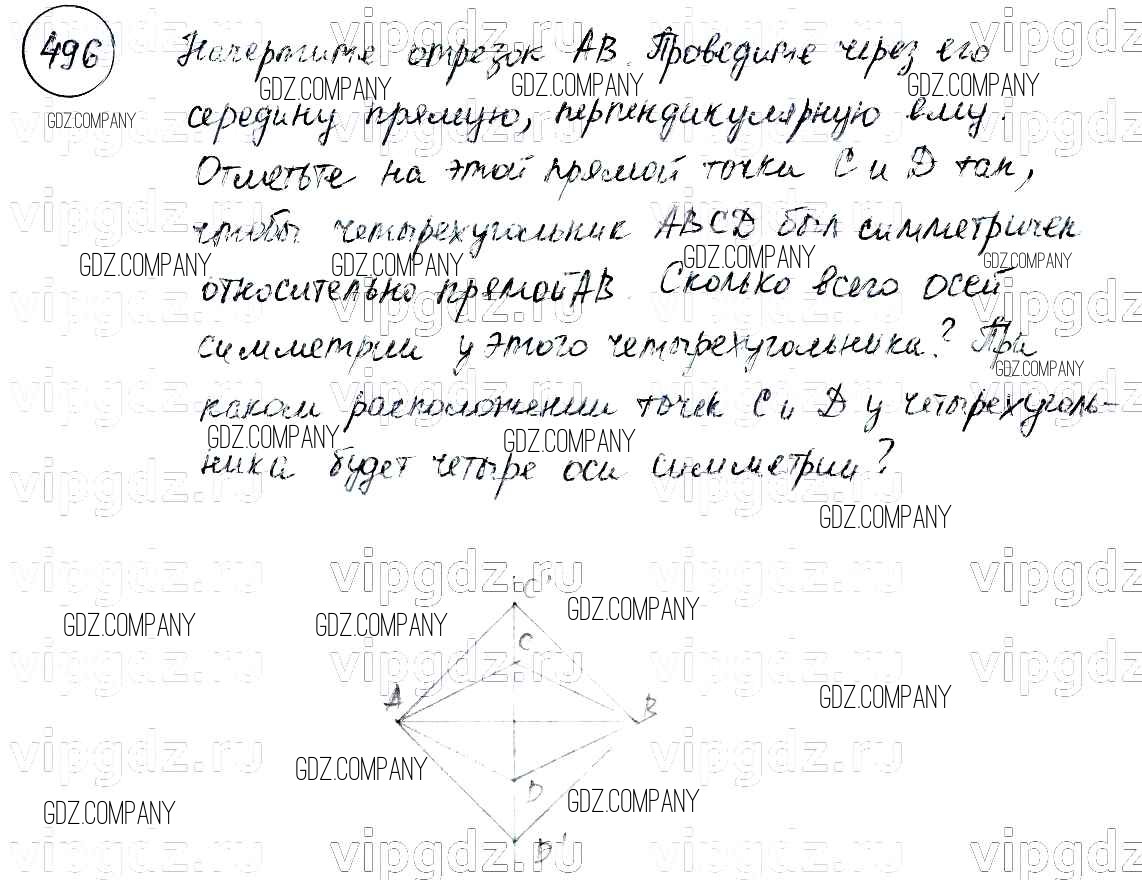 496
Начертите отрезок AB. Проведите через его
середину прямую, перпендикулярную ему.
Отметьте на этой прямой точки C и D так,
чтобы четырехугольник ABCD был симметричен
относительно прямой AB. Сколько всего осей
симметрии у этого четырехугольника? При
каком расположении точек C и D у четырехуголь-
ника будет четыре оси симметрии?
C'
C
A
B
D
D'
vipgdz.ru
GDZ.COMPANY